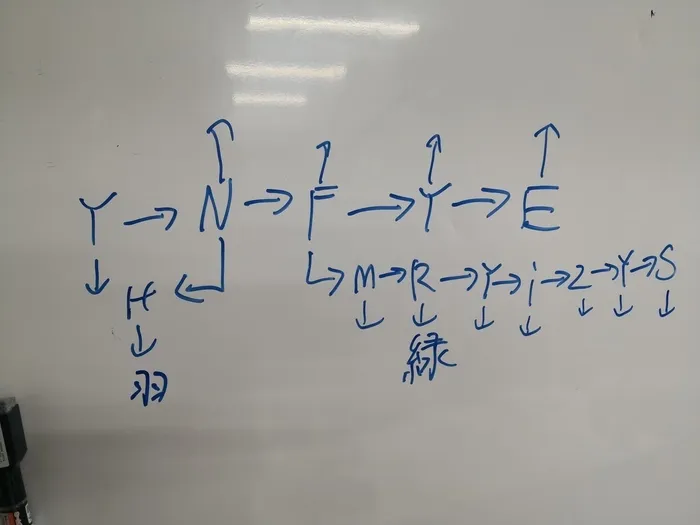 Y → N → F → Y → E
H ← M → R → Y → i → 2 → Y → S
羽 緑